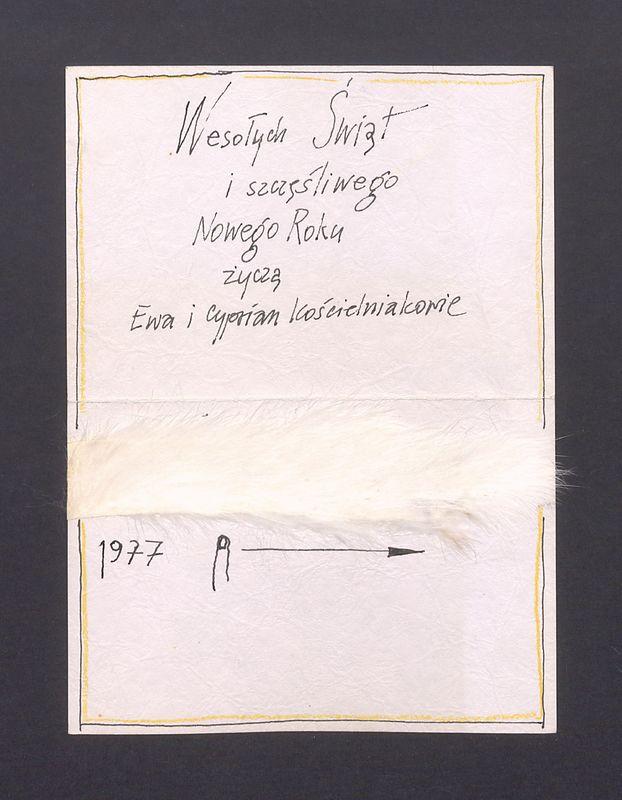 Wesołych Świąt
i szczęśliwego
Nowego Roku
życzą
Ewa i Cyprian Kościelniakowie
1977